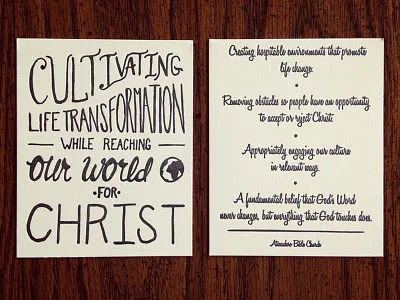 CULTIVATING
LIFE TRANSFORMATION
WHILE REACHING
OUR WORLD
·FOR·
CHRIST
Creating hospitable environments that promote
life change.
•
Removing obstacles so people have an opportunity
to accept or reject Christ.
•
Appropriately engaging our culture
in relevant ways.
•
A fundamental belief that God's Word
never changes, but everything that God touches does.
Atascadero Bible Church